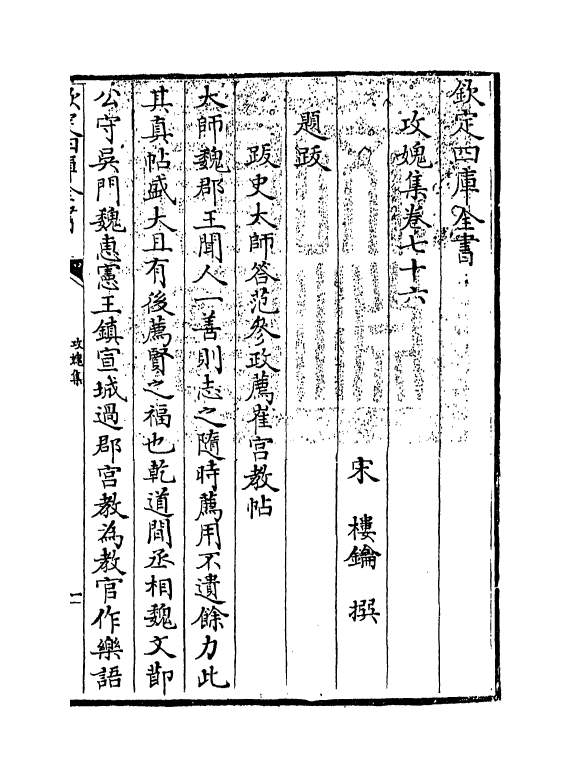 欽定四庫全書
攻媿集卷七十六
宋 樓鑰 撰
題跋
跋史太師答范參政薦崔宫教帖
太師魏郡王聞人一善則志之隨時薦用不遺餘力此
其真帖盛大且有後薦賢之福也乾道間丞相魏文節
公守吳門魏惠憲王鎮宣城過郡宫教為教官作樂語
欽定四庫全書
攻媿集
一